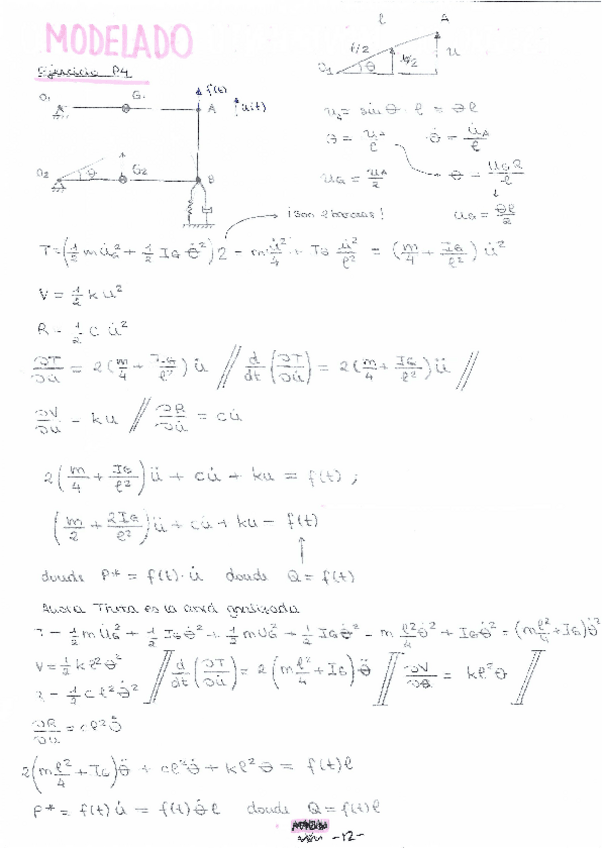 MODELADO
Ejercicio P4
ℓ
A
ℓ/2
u/2
u
θ
O₁
O₁
G₁
f(t)
A
u(t)
O₂
θ
G₂
B
u_A = sin θ · ℓ = θℓ
θ = u_A/ℓ    θ̇ = u̇_A/ℓ
u_G = u_A/2
u_G = θℓ/2
¡son 2 barras!
T = (1/2 m u̇_G² + 1/2 I_G θ̇²) 2 = m u̇²/4 + I_G u̇²/ℓ² = (m/4 + I_G/ℓ²) u̇²
V = 1/2 k u²
R = 1/2 c u̇²
∂T/∂u̇ = 2(m/4 + I_G/ℓ²) u̇ // d/dt (∂T/∂u̇) = 2(m/4 + I_G/ℓ²) ü //
∂V/∂u = ku // ∂R/∂u̇ = cu̇
2(m/4 + I_G/ℓ²) ü + cu̇ + ku = f(t) ;
(m/2 + 2I_G/ℓ²) ü + cu̇ + ku = f(t)
donde P* = f(t)·u̇ donde Q = f(t)
Ahora Thita es la coord generalizada
T = 1/2 m u̇_G² + 1/2 I_G θ̇² + 1/2 m u̇_G² + 1/2 I_G θ̇² = m ℓ²/4 θ̇² + I_G θ̇² = (m ℓ²/4 + I_G) θ̇²
V = 1/2 k ℓ² θ² // d/dt (∂T/∂u̇) = 2 (m ℓ²/4 + I_G) θ̈ // ∂V/∂θ = kℓ²θ //
R = 1/2 c ℓ² θ̇²
∂R/∂u̇ = cℓ²θ̇
2(m ℓ²/4 + I_G) θ̈ + cℓ²θ̇ + kℓ²θ = f(t)ℓ
P* = f(t) u̇ = f(t) θ̇ ℓ donde Q = f(t)ℓ
-12-